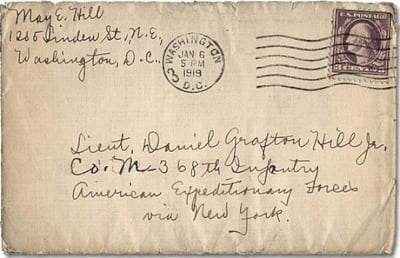 May E. Hill
1200 Linden St., N.E.,
Washington, D.C.
WASHINGTON
JAN 6
5 PM
1919
D.C.
3
U.S. POSTAGE
3 CENTS 3
Lieut. Daniel Grafton Hill Jr.
Co. M - 368th Infantry
American Expeditionary Forces
via New York.